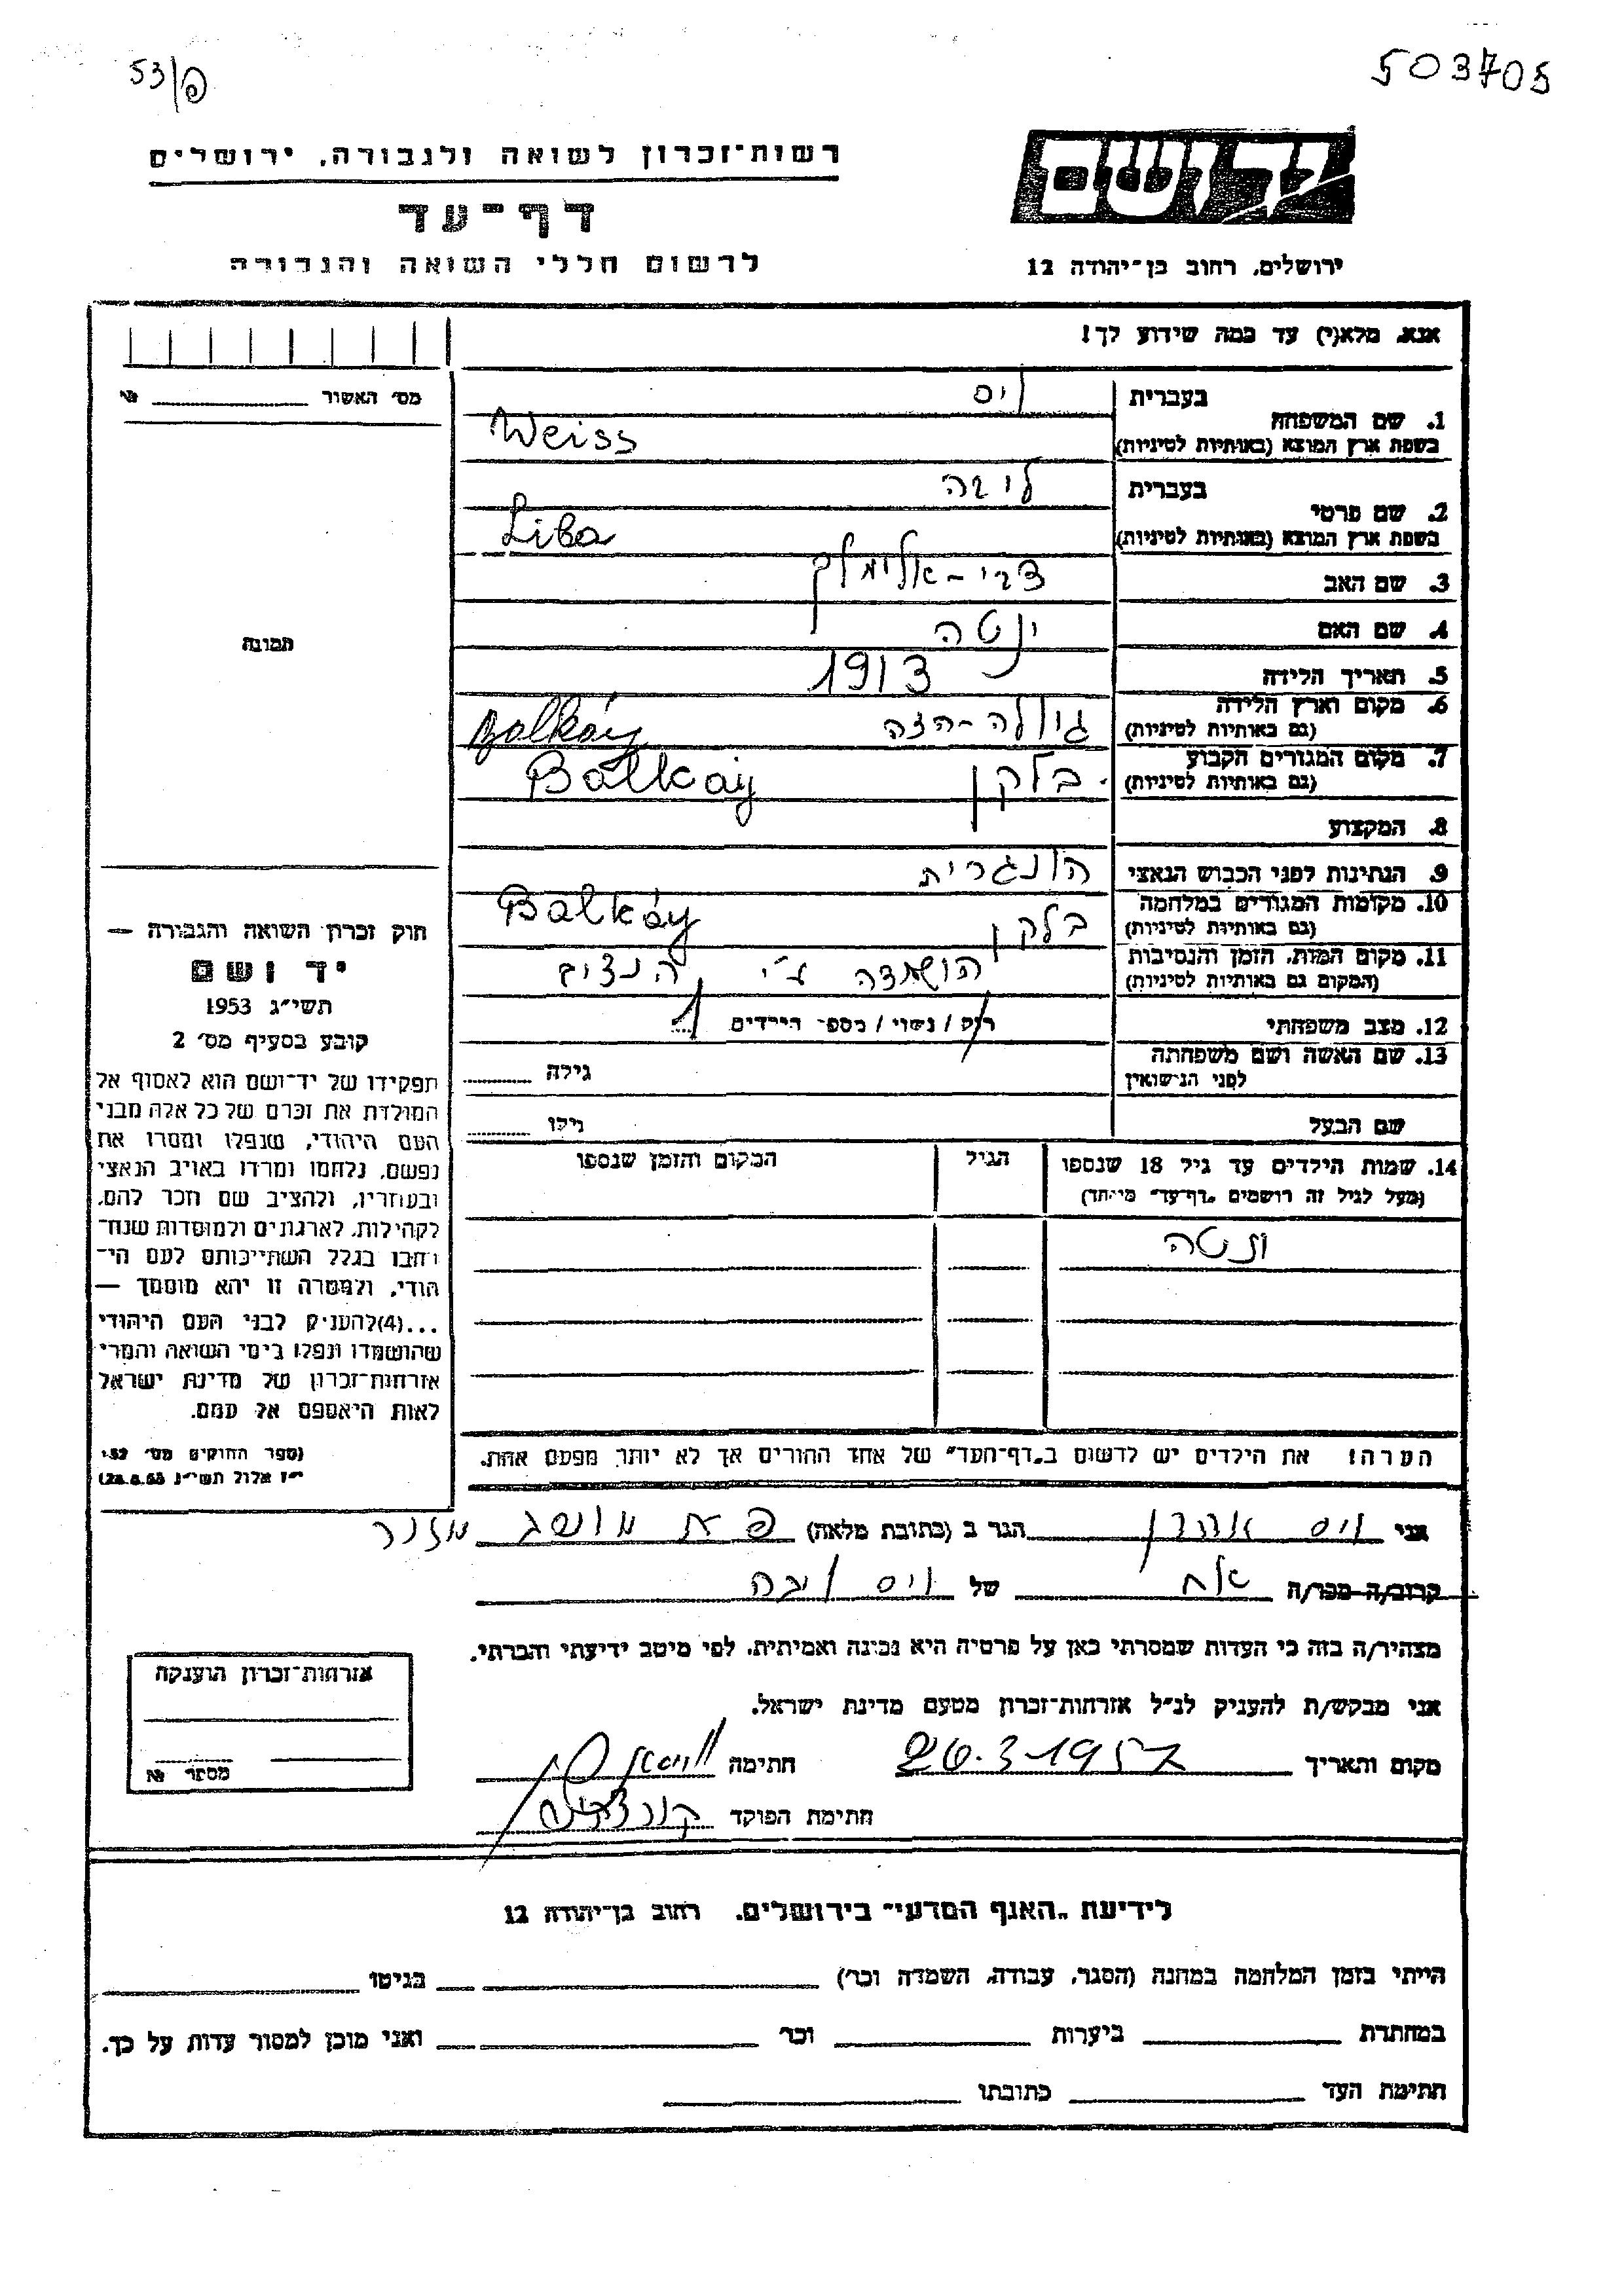 53/פ
503705
רשות־זכרון לשואה ולגבורה, ירושלים
דף־עד
לרשום חללי השואה והגבורה
יד ושם
ירושלים, רחוב בן־יהודה 12
אנא, מלא(י) עד כמה שידוע לך!
מס׳ האשור № 
1. שם המשפחה בעברית ויס
בשפת ארץ המוצא (באותיות לטיניות) Weiss
2. שם פרטי בעברית ליבה
בשפת ארץ המוצא (באותיות לטיניות) Liba
3. שם האב צבי-אלימלך
4. שם האם ינטה
תמונה
5. תאריך הלידה 1913
6. מקום וארץ הלידה
(גם באותיות לטיניות) Balkáy
7. מקום המגורים הקבוע
(גם באותיות לטיניות) בלקן Balkaij
8. המקצוע
9. הנתינות לפני הכבוש הנאצי הונגרית
10. מקומות המגורים במלחמה
(גם באותיות לטיניות) בלקן Balkáy
11. מקום המות, הזמן והנסיבות
(המקום גם באותיות לטיניות) הושמדה ע״י הנצים
12. מצב משפחתי רוק / נשוי / מספר הילדים 1
13. שם האשה ושם משפחתה
לפני הנישואין גילה
שם הבעל גילו
14. שמות הילדים עד גיל 18 שנספו הגיל המקום והזמן שנספו
(מעל לגיל זה רושמים „דף־עד״ מיוחד)
ינטה
הערה! את הילדים יש לרשום ב„דף־העד״ של אחד ההורים אך לא יותר מפעם אחת.
חוק זכרון השואה והגבורה —
יד ושם
תשי״ג 1953
קובע בסעיף מס׳ 2
תפקידו של יד־ושם הוא לאסוף אל
המולדת את זכרם של כל אלה מבני
העם היהודי, שנפלו ומסרו את
נפשם, נלחמו ומרדו באויב הנאצי
ובעוזריו, ולהציב שם וזכר להם,
לקהילות, לארגונים ולמוסדות שנח־
רבו בגלל השתייכותם לעם הי־
הודי, ולמטרה זו יהא מוסמך —
...(4) להעניק לבני העם היהודי
שהושמדו ונפלו בימי השואה והמרי
אזרחות־זכרון של מדינת ישראל
לאות היאספם אל עמם.
(ספר החוקים מס׳ 132
י״ז אלול תשי״ג 28.8.53)
אני ויס אהרן הגר ב (כתובת מלאה) מושב מזור
קרוב/ה מכר/ה אח של ויס ליבה
מצהיר/ה בזה כי העדות שמסרתי כאן על פרטיה היא נכונה ואמיתית, לפי מיטב ידיעתי והכרתי.
אני מבקש/ת להעניק לנ״ל אזרחות־זכרון מטעם מדינת ישראל.
מקום ותאריך 26.3.1957 חתימה
חתימת הפוקד
אזרחות־זכרון הוענקה
מספר №
לידיעת „האגף המדעי״ בירושלים, רחוב בן־יהודה 12
הייתי בזמן המלחמה במחנה (הסגר, עבודה, השמדה וכו׳) בגיטו
במחתרת ביערות וכו׳ ואני מוכן למסור עדות על כך.
חתימת העד כתובתו